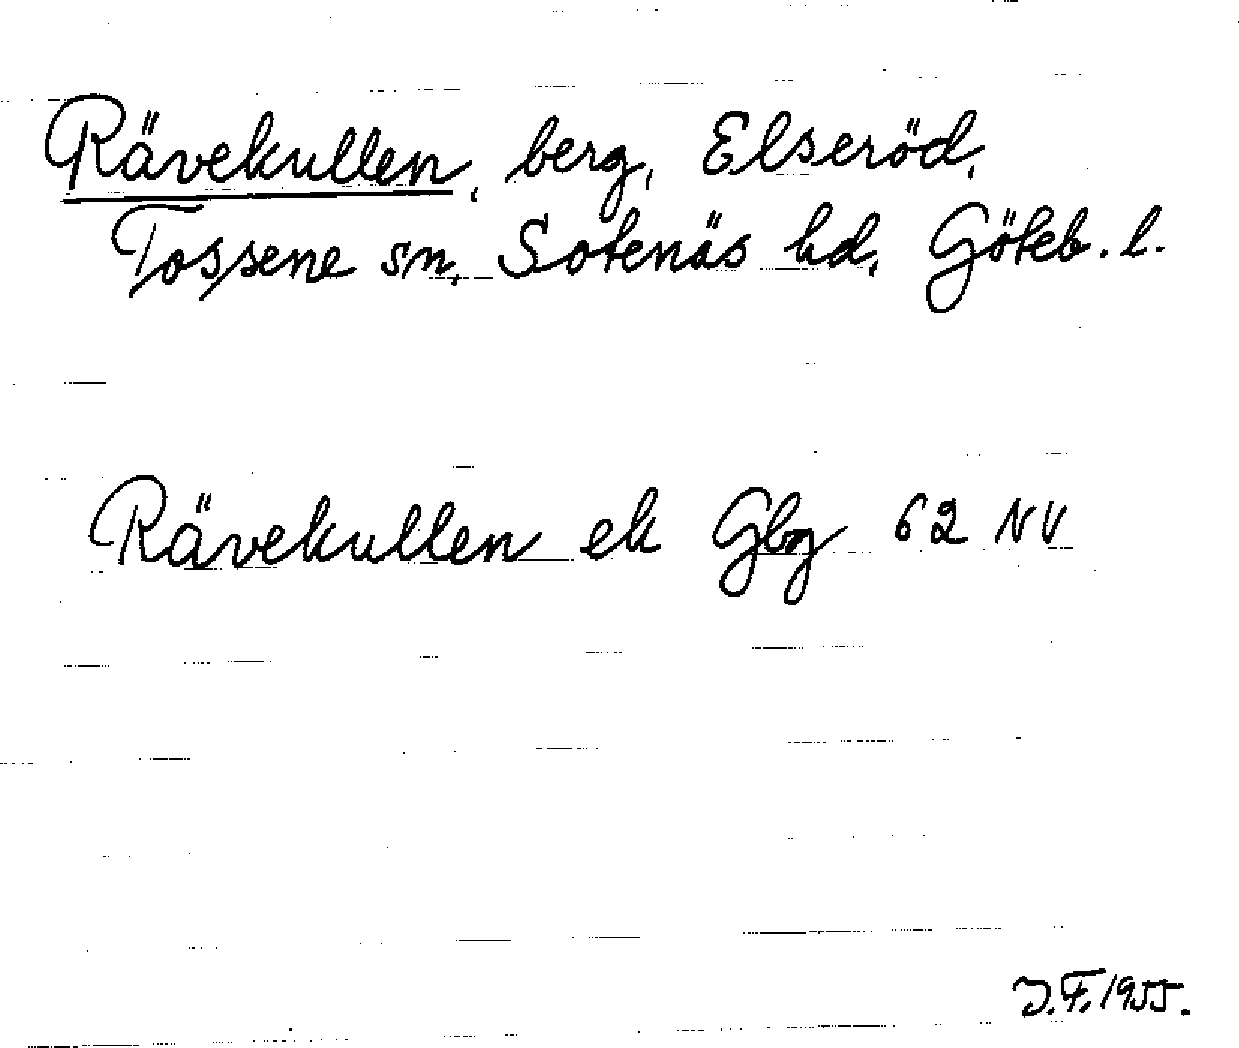 Rävekullen, berg, Elseröd,
Tossene sn, Sotenäs hd, Göteb. l.
Rävekullen ek Gbg 62 NV
J.F. 1955.